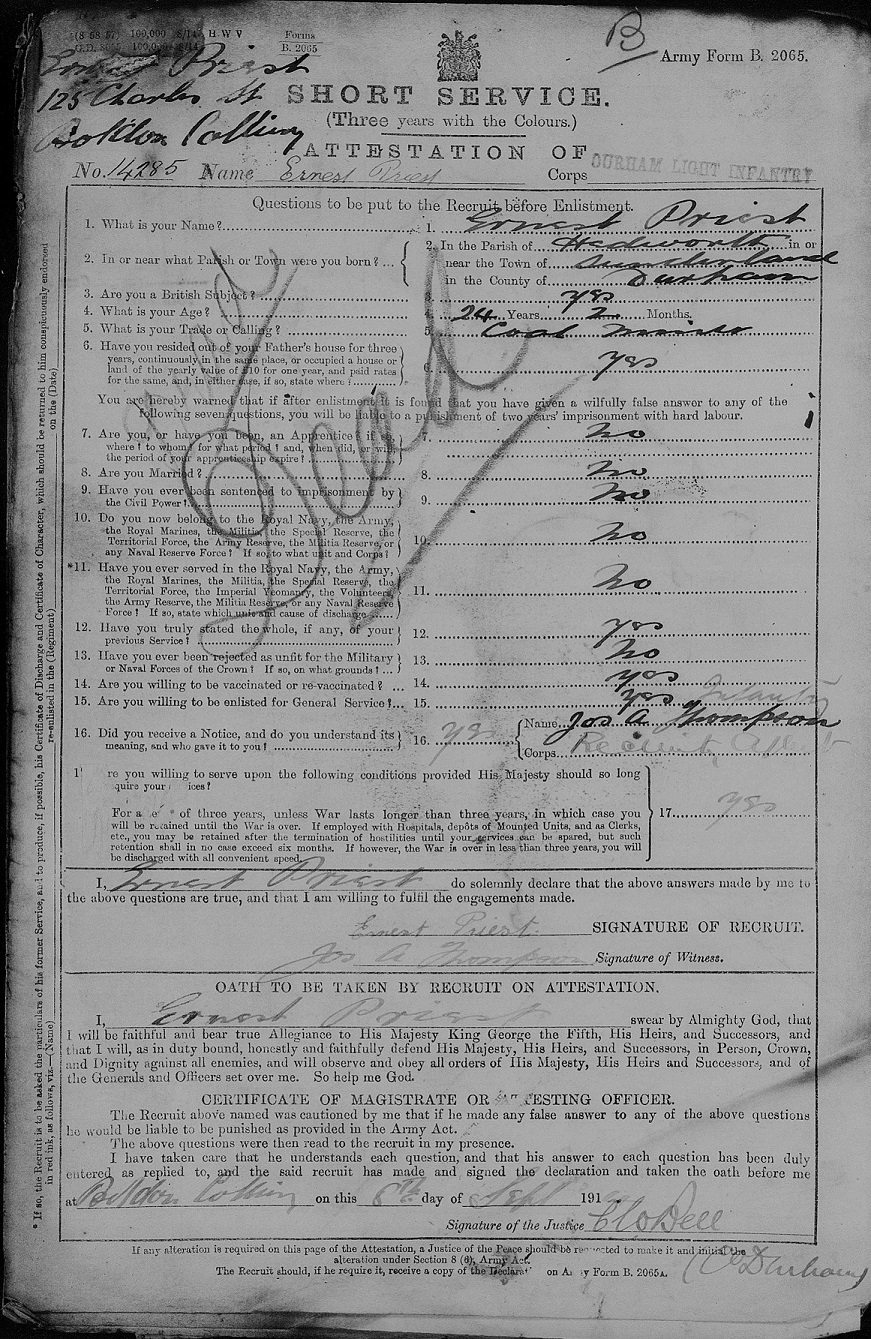 (8 58 57) 100,000 8/14 H W V Forms
G.D. 8055 100,000 8/14 B. 2065
B
Army Form B. 2065.
Ernest Priest
125 Charles St
Boldon Colliery
SHORT SERVICE.
(Three years with the Colours.)
ATTESTATION OF
No. 14285 Name Ernest Priest Corps DURHAM LIGHT INFANTRY
Questions to be put to the Recruit before Enlistment.
1. What is your Name? 1. Ernest Priest
2. In or near what Parish or Town were you born? ... 2. In the Parish of Hedworth in or
near the Town of Sunderland
in the County of Durham
3. Are you a British Subject? 3. yes
4. What is your Age? 4. 24 Years 2 Months.
5. What is your Trade or Calling? 5. Coal
6. Have you resided out of your Father's house for three
years, continuously in the same place, or occupied a house or
land of the yearly value of £10 for one year, and paid rates
for the same, and, in either case, if so, state where? 6. yes
You are hereby warned that if after enlistment it is found that you have given a wilfully false answer to any of the
following seven questions, you will be liable to a punishment of two years' imprisonment with hard labour.
7. Are you, or have you been, an Apprentice? if so,
where? to whom? for what period? and, when did, or will,
the period of your apprenticeship expire? 7. No
8. Are you Married? 8. No
9. Have you ever been sentenced to imprisonment by
the Civil Power? 9. No
10. Do you now belong to the Royal Navy, the Army,
the Royal Marines, the Militia, the Special Reserve, the
Territorial Force, the Army Reserve, the Militia Reserve, or
any Naval Reserve Force? If so, to what unit and Corps? 10. No
*11. Have you ever served in the Royal Navy, the Army,
the Royal Marines, the Militia, the Special Reserve, the
Territorial Force, the Imperial Yeomanry, the Volunteers,
the Army Reserve, the Militia Reserve, or any Naval Reserve
Force? If so, state which unit and cause of discharge 11. No
12. Have you truly stated the whole, if any, of your
previous Service? 12. yes
13. Have you ever been rejected as unfit for the Military
or Naval Forces of the Crown? If so, on what grounds? ... 13. No
14. Are you willing to be vaccinated or re-vaccinated? ... 14. yes
15. Are you willing to be enlisted for General Service?... 15. yes Infantry
16. Did you receive a Notice, and do you understand its
meaning, and who gave it to you? 16. yes Name Jos A Thompson
Corps
re you willing to serve upon the following conditions provided His Majesty should so long
quire your ices?
For a of three years, unless War lasts longer than three years, in which case you
will be retained until the War is over. If employed with Hospitals, depôts of Mounted Units, and as Clerks,
etc., you may be retained after the termination of hostilities until your services can be spared, but such
retention shall in no case exceed six months. If however, the War is over in less than three years, you will
be discharged with all convenient speed. 17. yes
I, Ernest Priest do solemnly declare that the above answers made by me to
the above questions are true, and that I am willing to fulfil the engagements made.
Ernest Priest SIGNATURE OF RECRUIT.
Jos A Thompson Signature of Witness.
OATH TO BE TAKEN BY RECRUIT ON ATTESTATION.
I, Ernest Priest swear by Almighty God, that
I will be faithful and bear true Allegiance to His Majesty King George the Fifth, His Heirs, and Successors, and
that I will, as in duty bound, honestly and faithfully defend His Majesty, His Heirs, and Successors, in Person, Crown,
and Dignity against all enemies, and will observe and obey all orders of His Majesty, His Heirs and Successors, and of
the Generals and Officers set over me. So help me God.
CERTIFICATE OF MAGISTRATE OR ATTESTING OFFICER.
The Recruit above named was cautioned by me that if he made any false answer to any of the above questions
he would be liable to be punished as provided in the Army Act.
The above questions were then read to the recruit in my presence.
I have taken care that he understands each question, and that his answer to each question has been duly
entered as replied to, and the said recruit has made and signed the declaration and taken the oath before me
at Boldon Colliery on this 8th day of Sept 191
Signature of the Justice Bell
Durham
If any alteration is required on this page of the Attestation, a Justice of the Peace should be requested to make it and initial the
alteration under Section 8 (6), Army Act.
The Recruit should, if he require it, receive a copy of the Declarat on Army Form B. 2065A.
* If so, the Recruit is to be asked the particulars of his former Service, and to produce, if possible, his Certificate of Discharge and Certificate of Character, which should be returned to him conspicuously endorsed
in red ink, as follows, viz.—(Name) re-enlisted in the (Regiment) on the (Date)